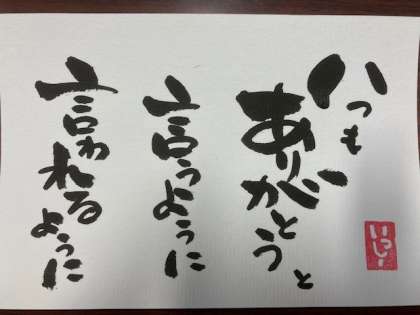 いつも
ありがとうと
言うように
言われるように
いっしー